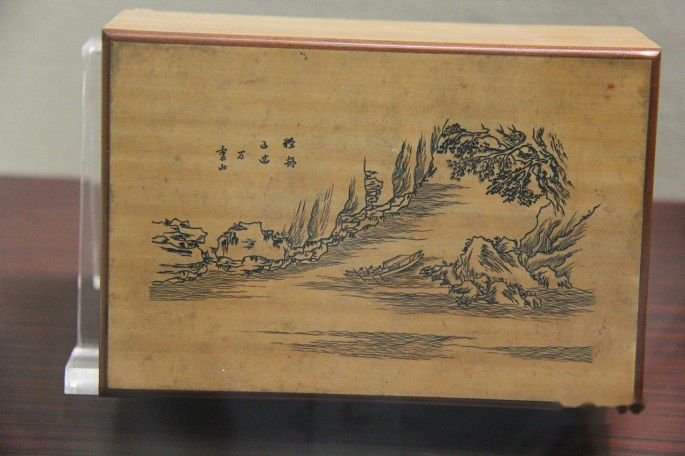 轻舟
已过
万
重山